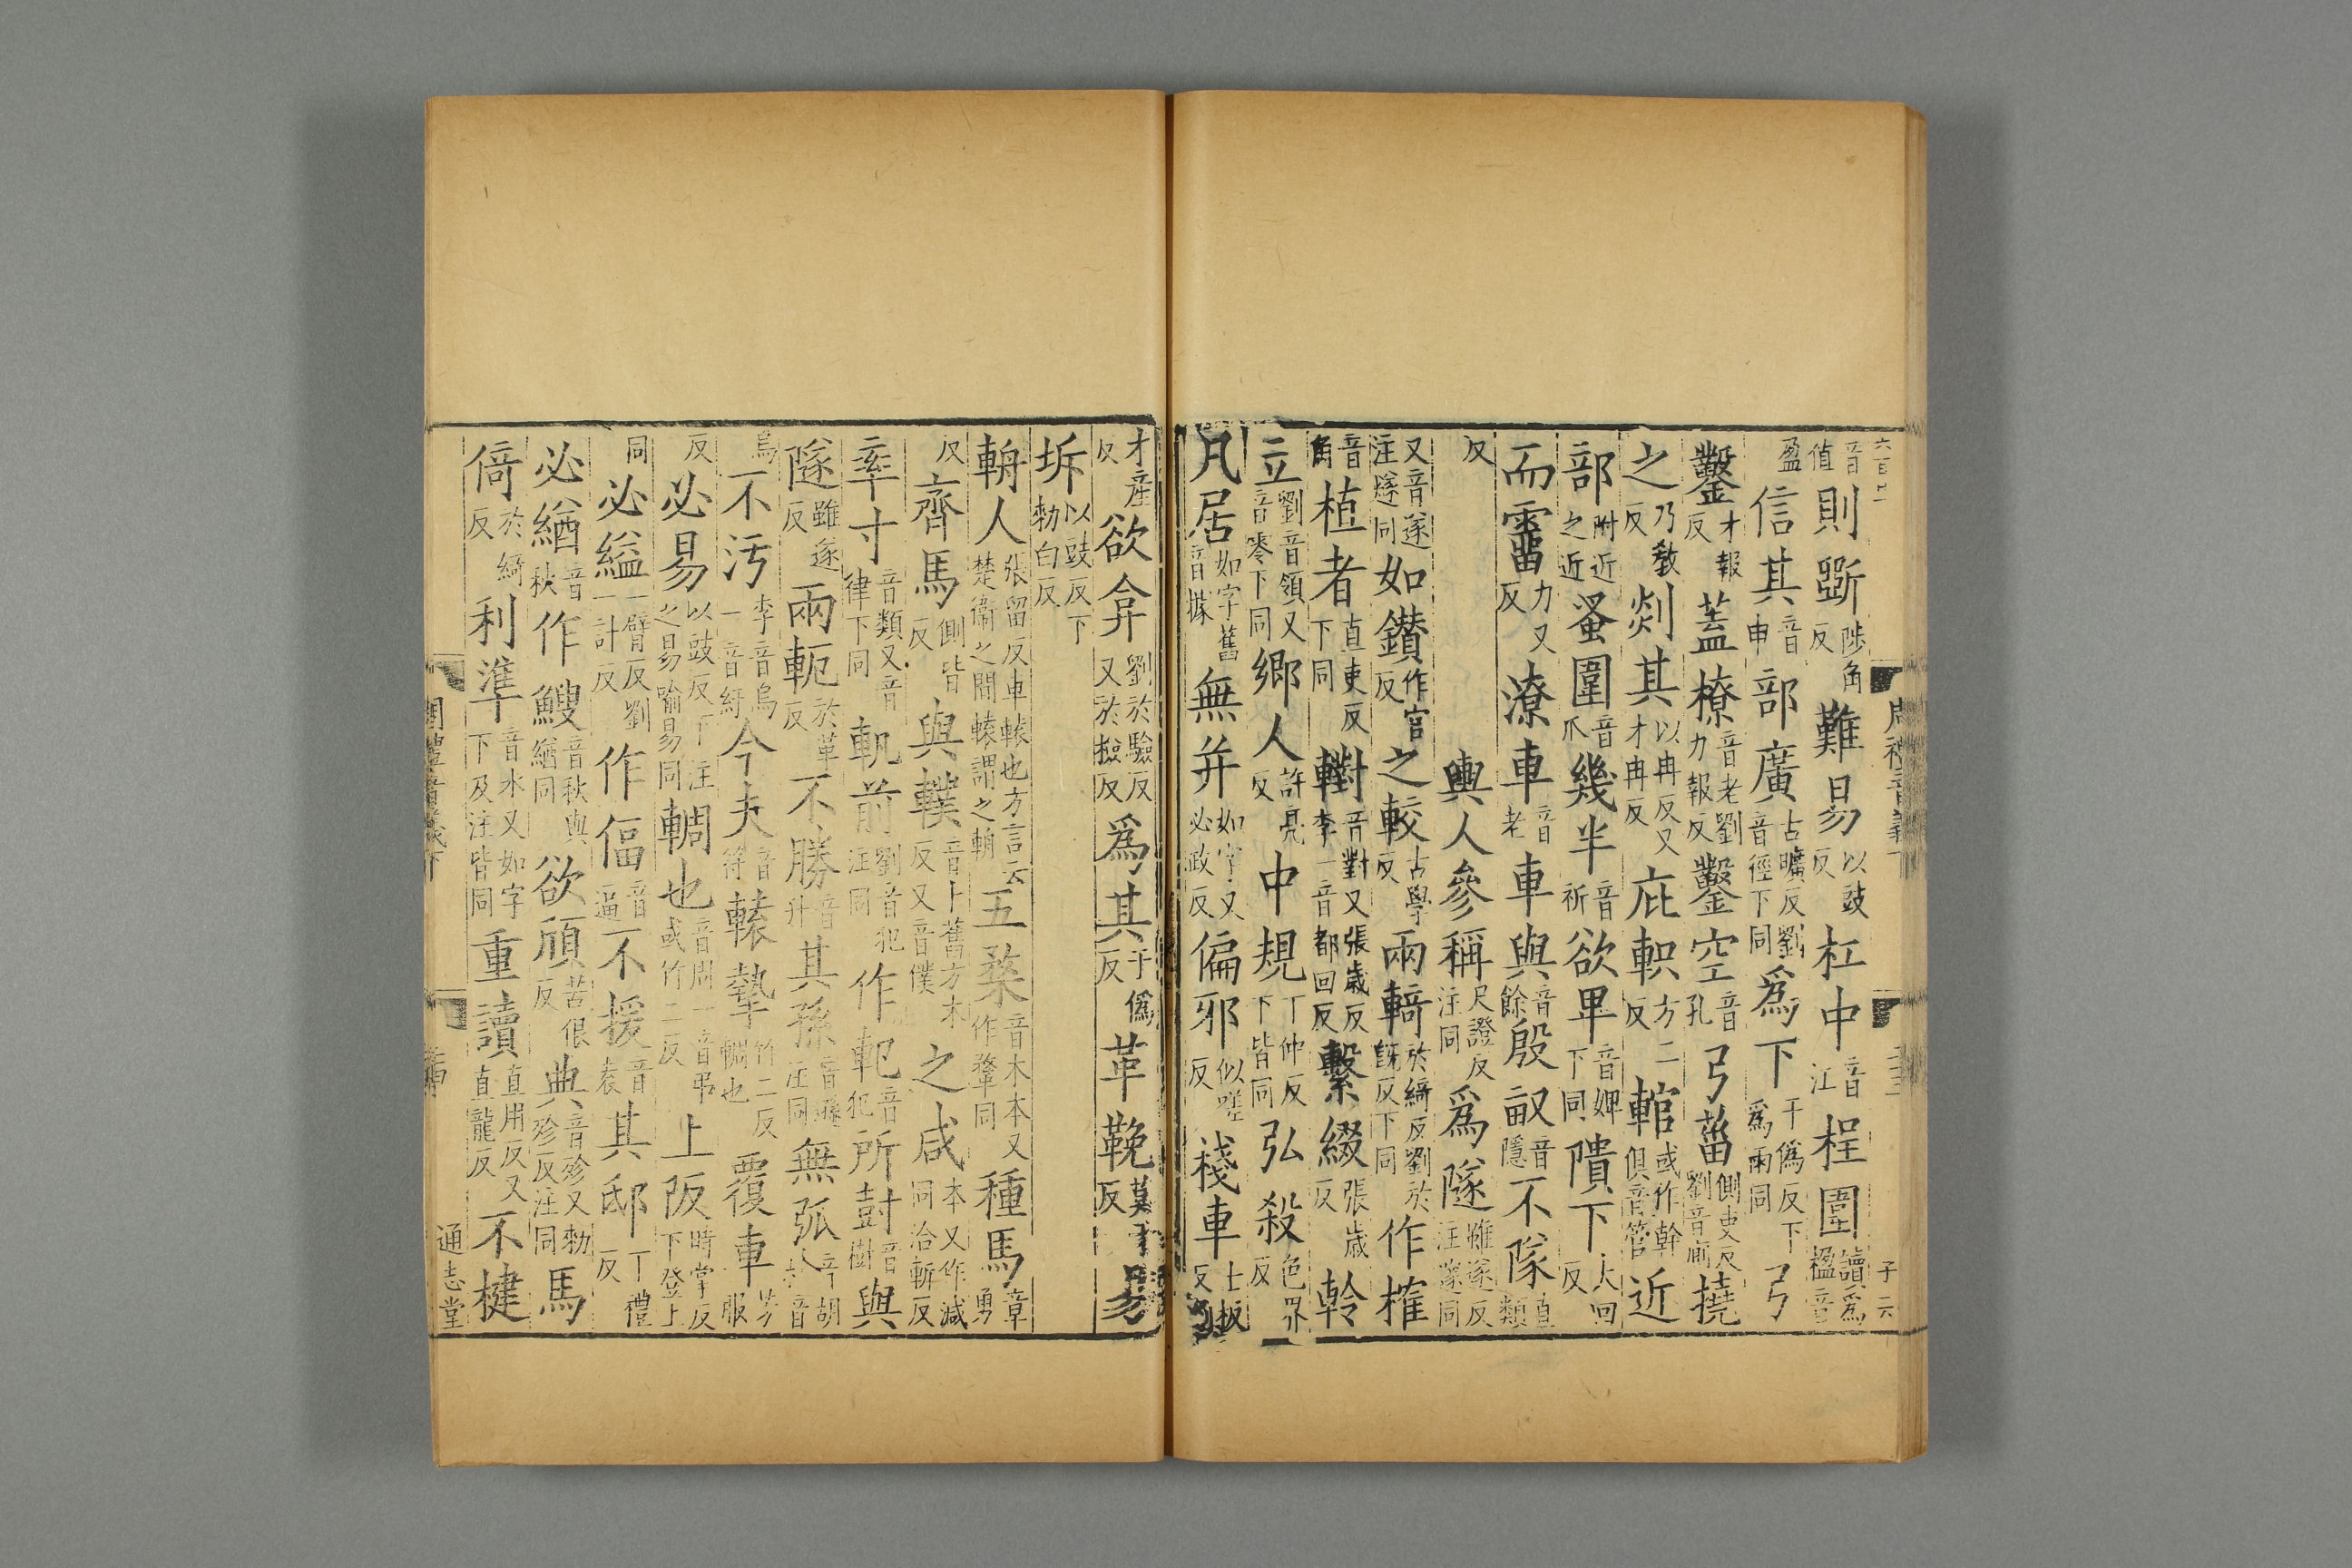 音値則斲陟角反難易以豉反杠中音江桯圍讀爲楹音
盈信其音申部廣古曠反劉音徑下同爲下于僞反下爲雨同弓
鑿才報反蓋橑音老劉力報反鑿空音孔弓菑側吏反劉音廁撓
之乃敎反剡其以冉反又才冉反庇軹方二反輨或作幹俱音管近
部附近之近蚤圍音爪幾半音祈欲卑音婢下同隤下大回反
而霤力又反潦車音老車與音餘殷畝音隱不隊直類
反輿人參稱尺證反注同爲隧雖遂反注邃同
又音遂注燧同如鑽作官反之較古學反兩輢於綺反劉於旣反下同作榷
音角植者直吏反下同轛音對又張歲反李一音都回反繫綴張歲反軨
立劉音領又音零下同鄕人許亮反中規丁仲反下皆同弘殺色界反
凡居如字舊音據無幷如字又必政反偏邪似嗟反棧車士板反劉
才產反欲弇劉於驗反又於撿反爲其于僞反革鞔莫干反易
坼以豉反下勑白反
輈人張留反車轅也方言云楚衞之間轅謂之輈五楘音木本又作鞪同種馬章勇
反齊馬側皆反與轐音卜舊方木反又音僕之咸本又作減同洽斬反
率寸音類又音律下同軓前劉音犯注同作軋音犯所尌音樹與
隧雖遂反兩軛於革反不勝音升其孫音遜注同無弧音胡
烏不汚李音烏一音紆今夫音符轅摯竹二反輖也覆車芳服
反必易以豉反下注之易踰易同輖也音周一音弔或竹二反上阪時掌反下登上
同必縊一臂反劉一計反作偪音逼不援音袁其邸丁禮反
必緧音秋作鰌音秋與緧同欲頎苦佷反典音殄又勑殄反注同馬
倚於綺反利準音水又如字下及注皆同重讀直用反又直龍反不楗
周禮音義下
通志堂